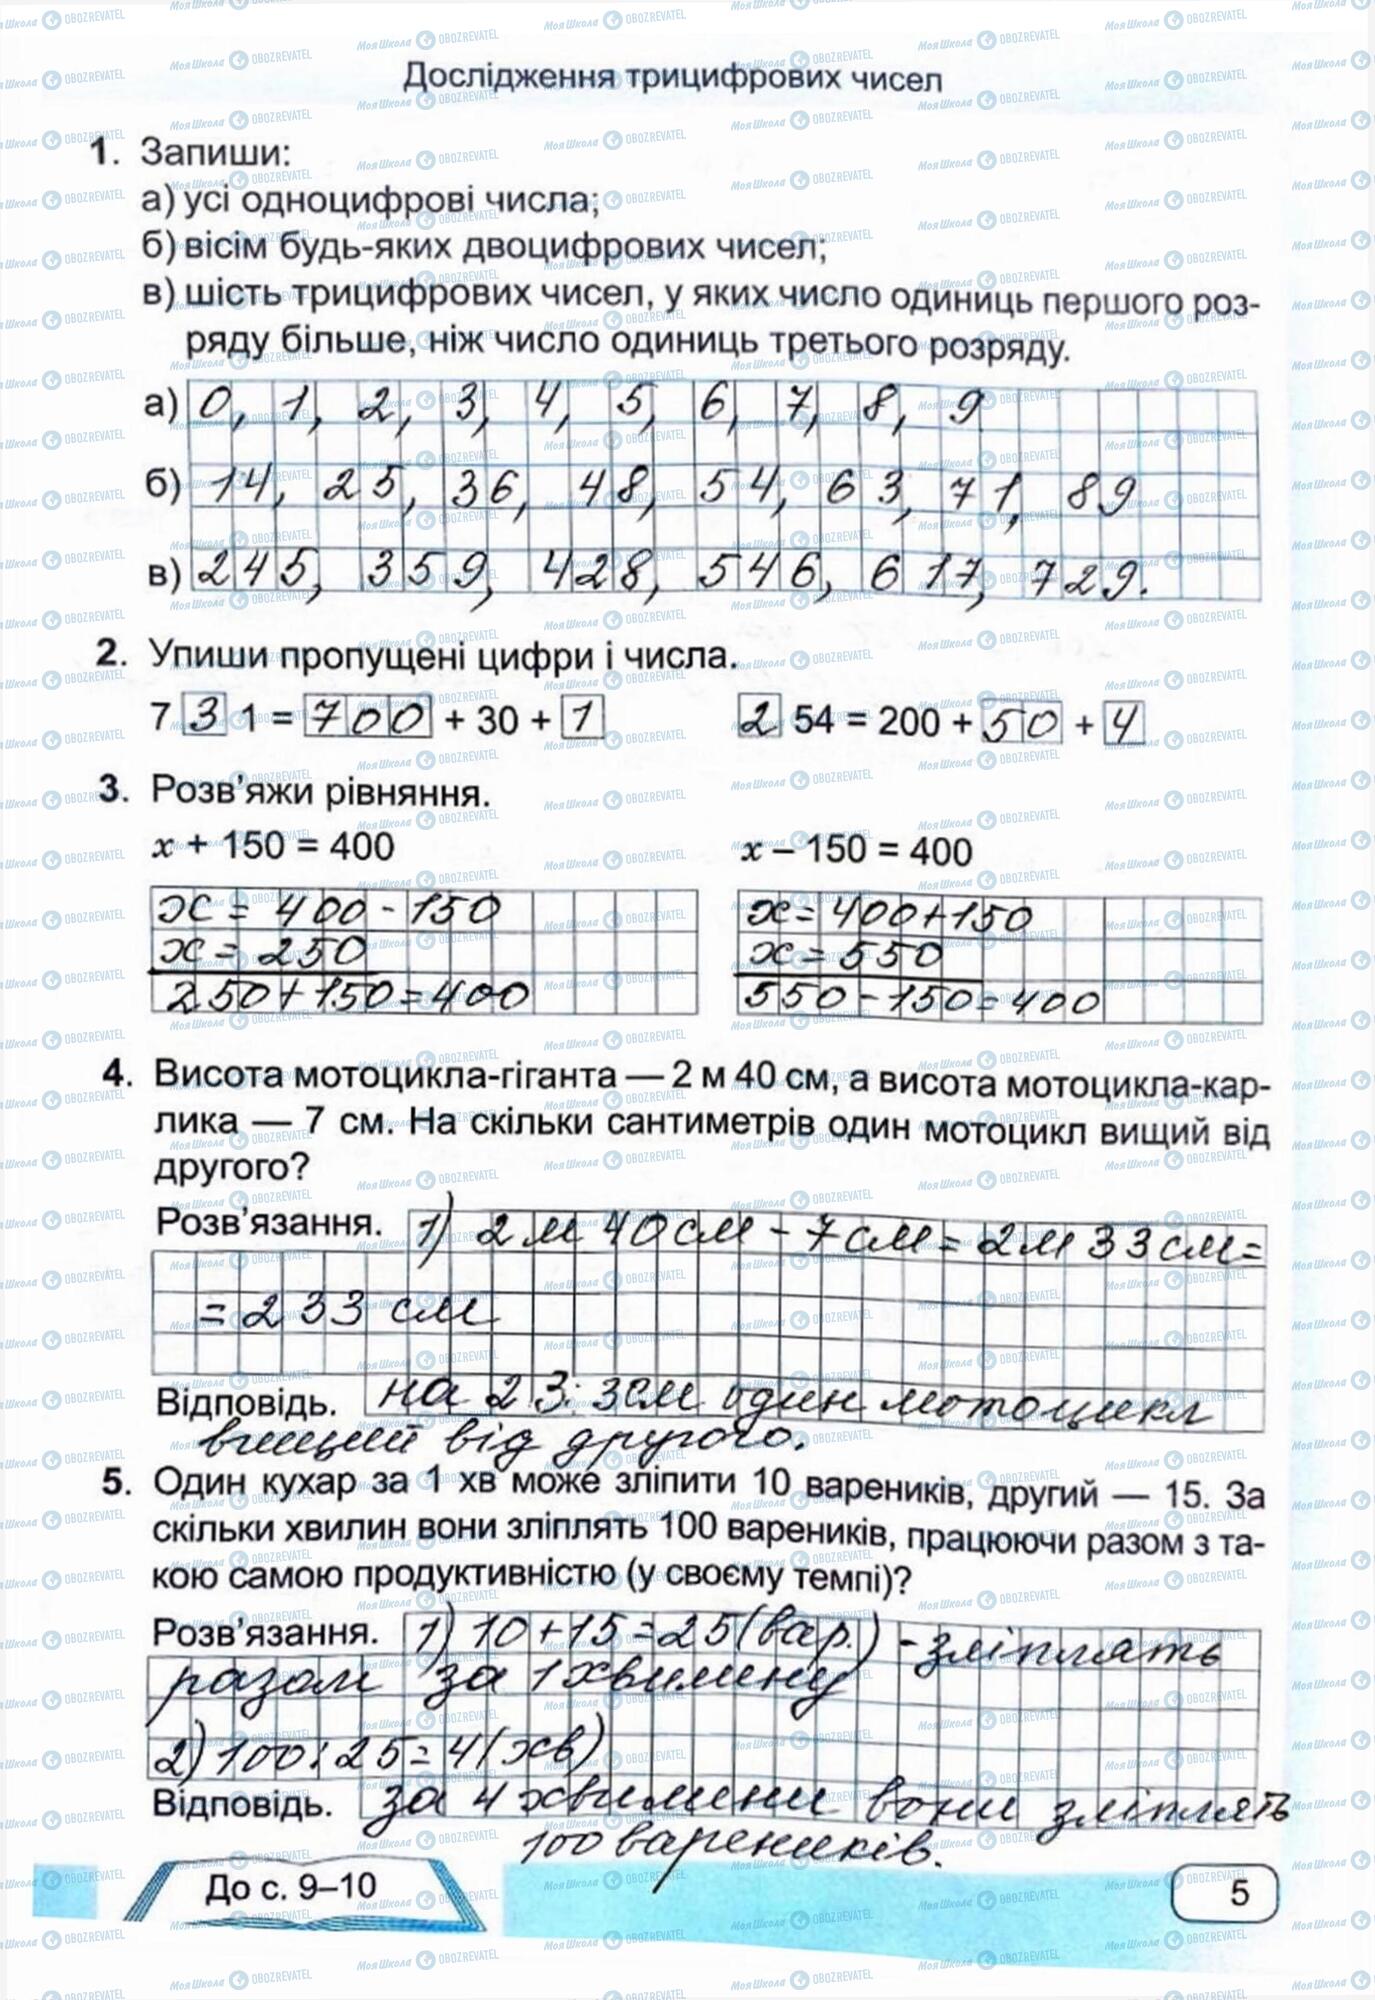 Дослідження трицифрових чисел
1. Запиши:
а) усі одноцифрові числа;
б) вісім будь-яких двоцифрових чисел;
в) шість трицифрових чисел, у яких число одиниць першого роз-
ряду більше, ніж число одиниць третього розряду.
а) 0, 1, 2, 3, 4, 5, 6, 7, 8, 9
б) 14, 25, 36, 48, 54, 63, 71, 89
в) 245, 359, 428, 546, 617, 729.
2. Упиши пропущені цифри і числа.
7 3 1 = 700 + 30 + 1 2 54 = 200 + 50 + 4
3. Розв'яжи рівняння.
x + 150 = 400 x – 150 = 400
x = 400 - 150 x = 400 + 150
x = 250 x = 550
250 + 150 = 400 550 - 150 = 400
4. Висота мотоцикла-гіганта — 2 м 40 см, а висота мотоцикла-кар-
лика — 7 см. На скільки сантиметрів один мотоцикл вищий від
другого?
Розв'язання. 1) 2 м 40 см - 7 см = 2 м 33 см =
= 233 см
Відповідь. на 233 см один мотоцикл
вищий від другого.
5. Один кухар за 1 хв може зліпити 10 вареників, другий — 15. За
скільки хвилин вони зліплять 100 вареників, працюючи разом з та-
кою самою продуктивністю (у своєму темпі)?
Розв'язання. 1) 10 + 15 = 25 (вар.) - зліплять
разом за 1 хвилину
2) 100 : 25 = 4 (хв)
Відповідь. за 4 хвилини вони зліплять
100 вареників.
До с. 9–10
5
МояШкола OBOZREVATEL